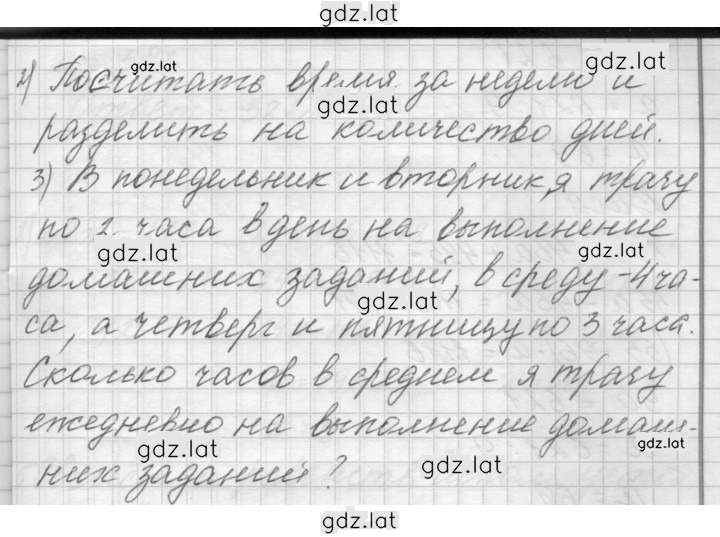 gdz.lat
gdz.lat
2) Посчитать время за неделю и
gdz.lat
gdz.lat
разделить на количество дней.
3) В понедельник и вторник, я трачу
по 2 часа в день на выполнение
gdz.lat
gdz.lat
домашних заданий, в среду - 4 ча-
gdz.lat
са, а четверг и пятницу по 3 часа.
Сколько часов в среднем я трачу
ежедневно на выполнение домаш-
gdz.lat
gdz.lat
gdz.lat
них заданий?
gdz.lat